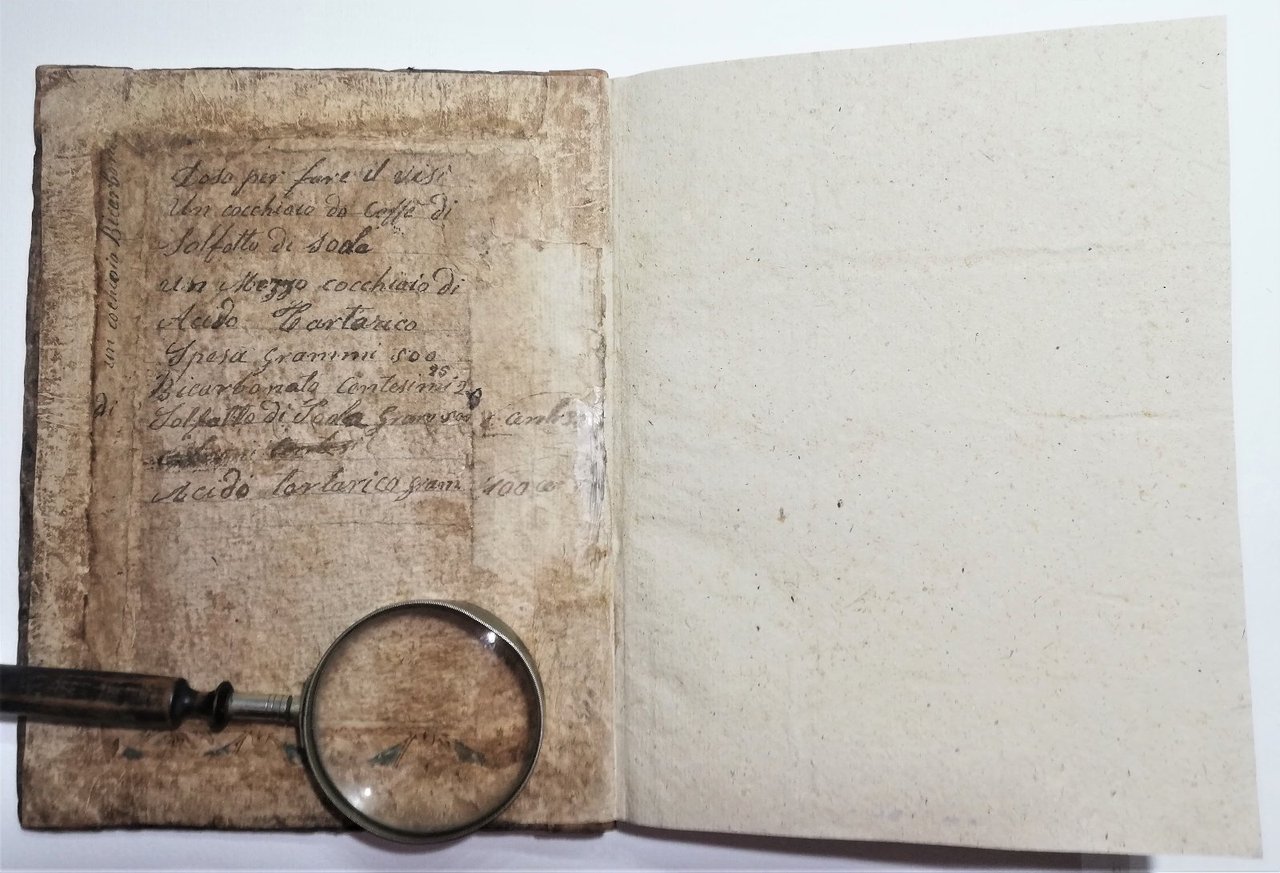 Dosa per fare il visi
Un cocchiaio da Caffè di
Solfatto di soda
un Mezzo cocchiaio di
Acido Tartarico
Spesa grammi 500
Bicarbonato Centesimi 25
Solfatto di Soda gram 500
Acido tartarico gram 100
un cochiaio Bicarbon
di